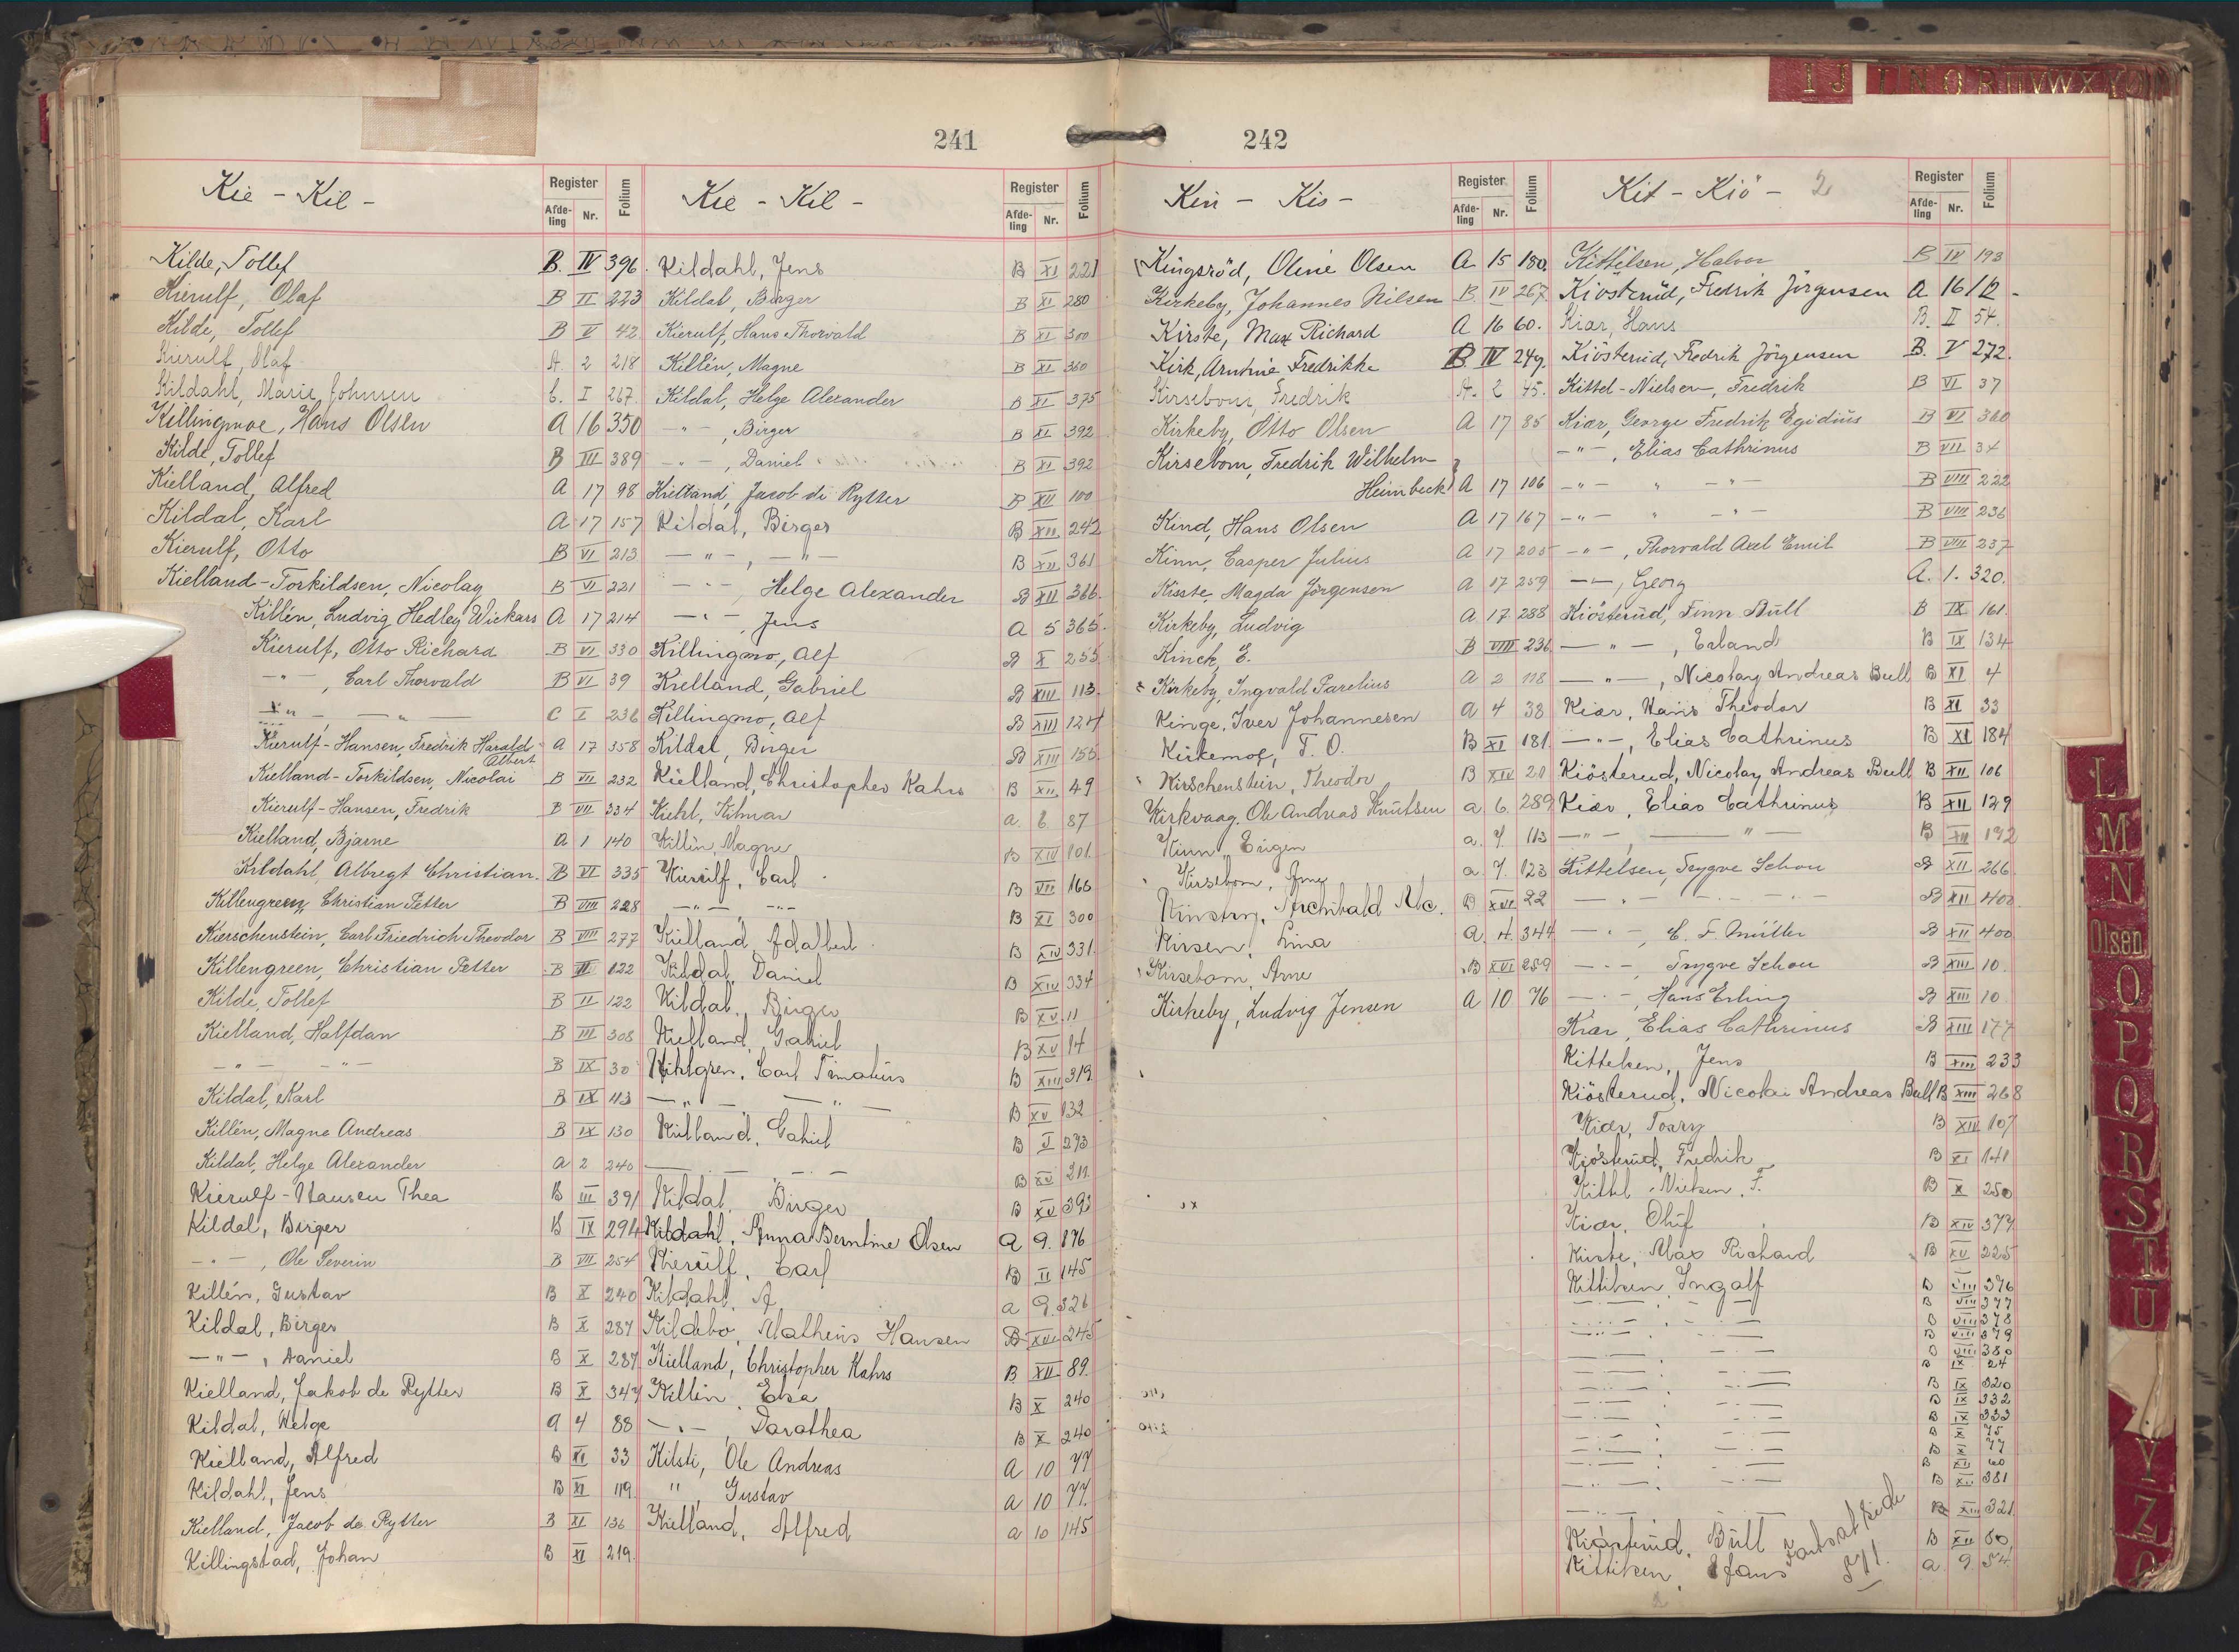 241
Kie - Kil -
Register
Afde-ling
Nr.
Folium
Kilde, Tollef B. IV 396.
Kierulf, Olaf B II 223
Kilde, Tollef B V 42
Kierulf, Olaf A. 2 218
Kildahl, Marie Johnsen I 267.
Killingmoe, Hans Olsen A 16 350
Kilde, Tollef B III 389
Kielland, Alfred A 17 98
Kildal, Karl A 17 157
Kierulf, Otto B VI 213
Kielland-Torkildsen, Nicolay B VI 221
Killén, Ludvig Hedley Wickars A 17 214
Kierulf, Otto Richard B VI 330
-"- , Carl Thorvald B VI 39
-"- , -"- C I 236
Kierulf-Hansen, Fredrik Harald A 17 358
Albert
Kielland-Torkildsen, Nicolai B VII 232
Kierulf-Hansen, Fredrik B VII 334
Kielland, Bjarne A 1 140
Kildahl, Albregt Christian. B VI 335
Killengreen, Christian Petter B VIII 228
Kierschenstein, Carl Friedrich Theodor B VIII 277
Killengreen, Christian Petter B 122
Kilde, Tollef B II 122
Kielland, Halfdan B III 308
-"- -"- B IX 30
Kildal, Karl B IX 113
Killén, Magne Andreas B IX 130
Kildal, Helge Alexander A 2 240
Kierulf-Hansen Thea B III 391
Kildal, Birger B IX 294
-"- , Ole Severin B VII 254
Killén, Gustav B X 240
Kildal, Birger B X 287
-"- , Daniel B X 287
Kielland, Jakob de Rytter B X 347
Kildal, Helge A 4 88
Kielland, Alfred B XI 33
Kildahl, Jens B XI 119
Kielland, Jacob de Rytter B XI 136
Killingstad, Johan B XI 219.
Kie - Kil -
Register
Afde-ling
Nr.
Folium
Kildahl, Jens B XI 221
Kildal, Birger B XI 280
Kierulf, Hans Thorvald B XI 300
Killén, Magne B XI 360
Kildal, Helge Alexander B XI 375
-"- , Birger B XI 392
-"- , Daniel B XI 392
Kielland, Jacob de Rytter B XII 100
Kildal, Birger B XII 242
-"- , -"- B XII 361
-"- , Helge Alexander B XII 366
-"- , Jens A 5 365.
Killingmo, Alf B X 255
Kielland, Gabriel B XIII 113.
Killingmo, Alf B XIII 124
Kildal, Birger B XIII 155
Kielland, Christopher Kahrs B XII 49
Kiehl, Hilmar a. 6 87
Killén, Magne B XIV 101.
Kierulf, Carl B VII 166
-"- -"- B XI 300
Kielland, Adalbert B XIV 331.
Kildal, Daniel B XIV 334
Kildal, Birger B XV 11
Kielland, Gabriel B XV 14
Kihlgren, Carl B XIII 319
-"- -"- B XV 132
Kielland, Gabriel B I 273
B XV 211.
Kildal, Birger B XV 393
Kildahl, Anna Berntine Olsen A 9. 176
Kierulf, Carl B II 145
Kildahl, A. a 9. 326
Kildebo, Matheus Hansen B XVI 245
Kielland, Christopher Kahrs B XII 89.
Killén, Elsa B X 240
-"- , Dorothea B X 240
Kilsti, Ole Andreas A 10 77
" Gustav A 10 77.
Kielland, Alfred a 10 145
242
Kin - Kis -
Register
Afde-ling
Nr.
Folium
Kingsröd, Oline Olsen A 15 180.
Kirkeby, Johannes Nilsen B IV 267
Kirste, Max Richard A 16 60.
Kirk, Arntine Fredrikke B IV 249.
Kirsebom, Fredrik A. 2 45.
Kirkeby, Otto Olsen A 17 85
Kirsebom, Fredrik Wilhelm
Heimbeck A 17 106
Kind, Hans Olsen A 17 167
Kinn, Casper Julius A 17 205
Kisste, Magda Jörgensen A 17 259
Kirkeby, Ludvig A 17 288
Kinck, E. B VIII 236
Kirkeby, Ingvald Parelius A 2 118
Kinge, Iver Johannesen A 4 38
Kirkemoe, T. O. B XI 181
Kirschenstein, Theodor B XIV 20
Kirkvaag, Ole Andreas Knutsen a 6 289
Kinn, Eugen a. 7 113
Kirsebom, Arne a 7. 123
Archibald Mc. B XVI 22
Kirsen, Lina A. 4. 344
Kirsebom, Arne B XVI 259
Kirkeby, Ludvig Jensen A 10 76
Kit - Kiö - 2
Register
Afde-ling
Nr.
Folium
Kittilsen, Halvor B IV 193
Kiösterud, Fredrik Jörgensen A 16 12 -
Kiær, Hans B. II 54.
Kiösterud, Fredrik Jörgensen B. V 272.
Kittel-Nielsen, Fredrik B VI 37
Kiær, George Fredrik Egidius B VI 360
-"- , Elias Cathrinus B VII 34
-"- " -"- B VIII 222
-"- " -"- B VIII 236
-"- , Thorvald Axel Emil B VIII 237
-"- , Georg A. 1. 320.
Kiösterud, Finn Bull B IX 161.
-"- , Erland B IX 134
-"- , Nicolay Andreas Bull B XI 4
Kiær, Hans Theodor B XI 33
-"- , Elias Cathrinus B XI 184
Kiösterud, Nicolay Andreas Bull B XII 106
Kiær, Elias Cathrinus B XII 129
-"- , -"- B XII 192
Kittelsen, Trygve Schou B XII 266
-"- -"- B XII 400
-"- , C. F. Müller B XII 400
-"- , Trygve Schou B XIII 10.
-"- , Hans Erling B XIII 10
Kiær, Elias Cathrinus B XIII 177
Kittelsen, Jens B XIII 233
Kiösterud, Nicolai Andreas Bull B XIII 268
Kiær, B XII 107
Kiösterud, Fredrik B XI 141
Kittel-Nielsen, F. B X 250
Kiær, Oluf B XIV 377
Kirste, Max Richard B XV 225
Kittilsen, Ingolf B VIII 376
B VIII 377
B VIII 378
B VIII 379
B VIII 380
B IX 24
B IX 320
B IX 332
B IX 333
B X 75
B X 77
B XII 60
B XII 381
B XIII 321
Kiösterud, Bull B XII 60
Kittilsen, Hans a. 9. 54.
Fortsat side 571.
I J T N O R U V W X Y
L
M
N
Olsen
O
P
Q
R
S
T
U
Y
Z